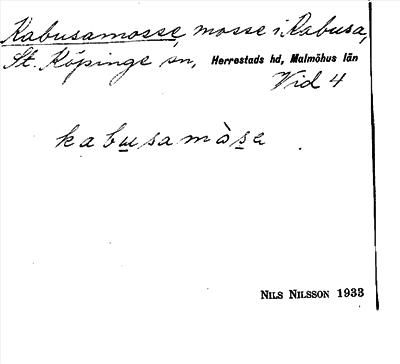 Kabusamosse, mosse i Kabusa,
St. Köpinge sn, Herrestads hd, Malmöhus län
Vid 4
kabusamòse
NILS NILSSON 1933